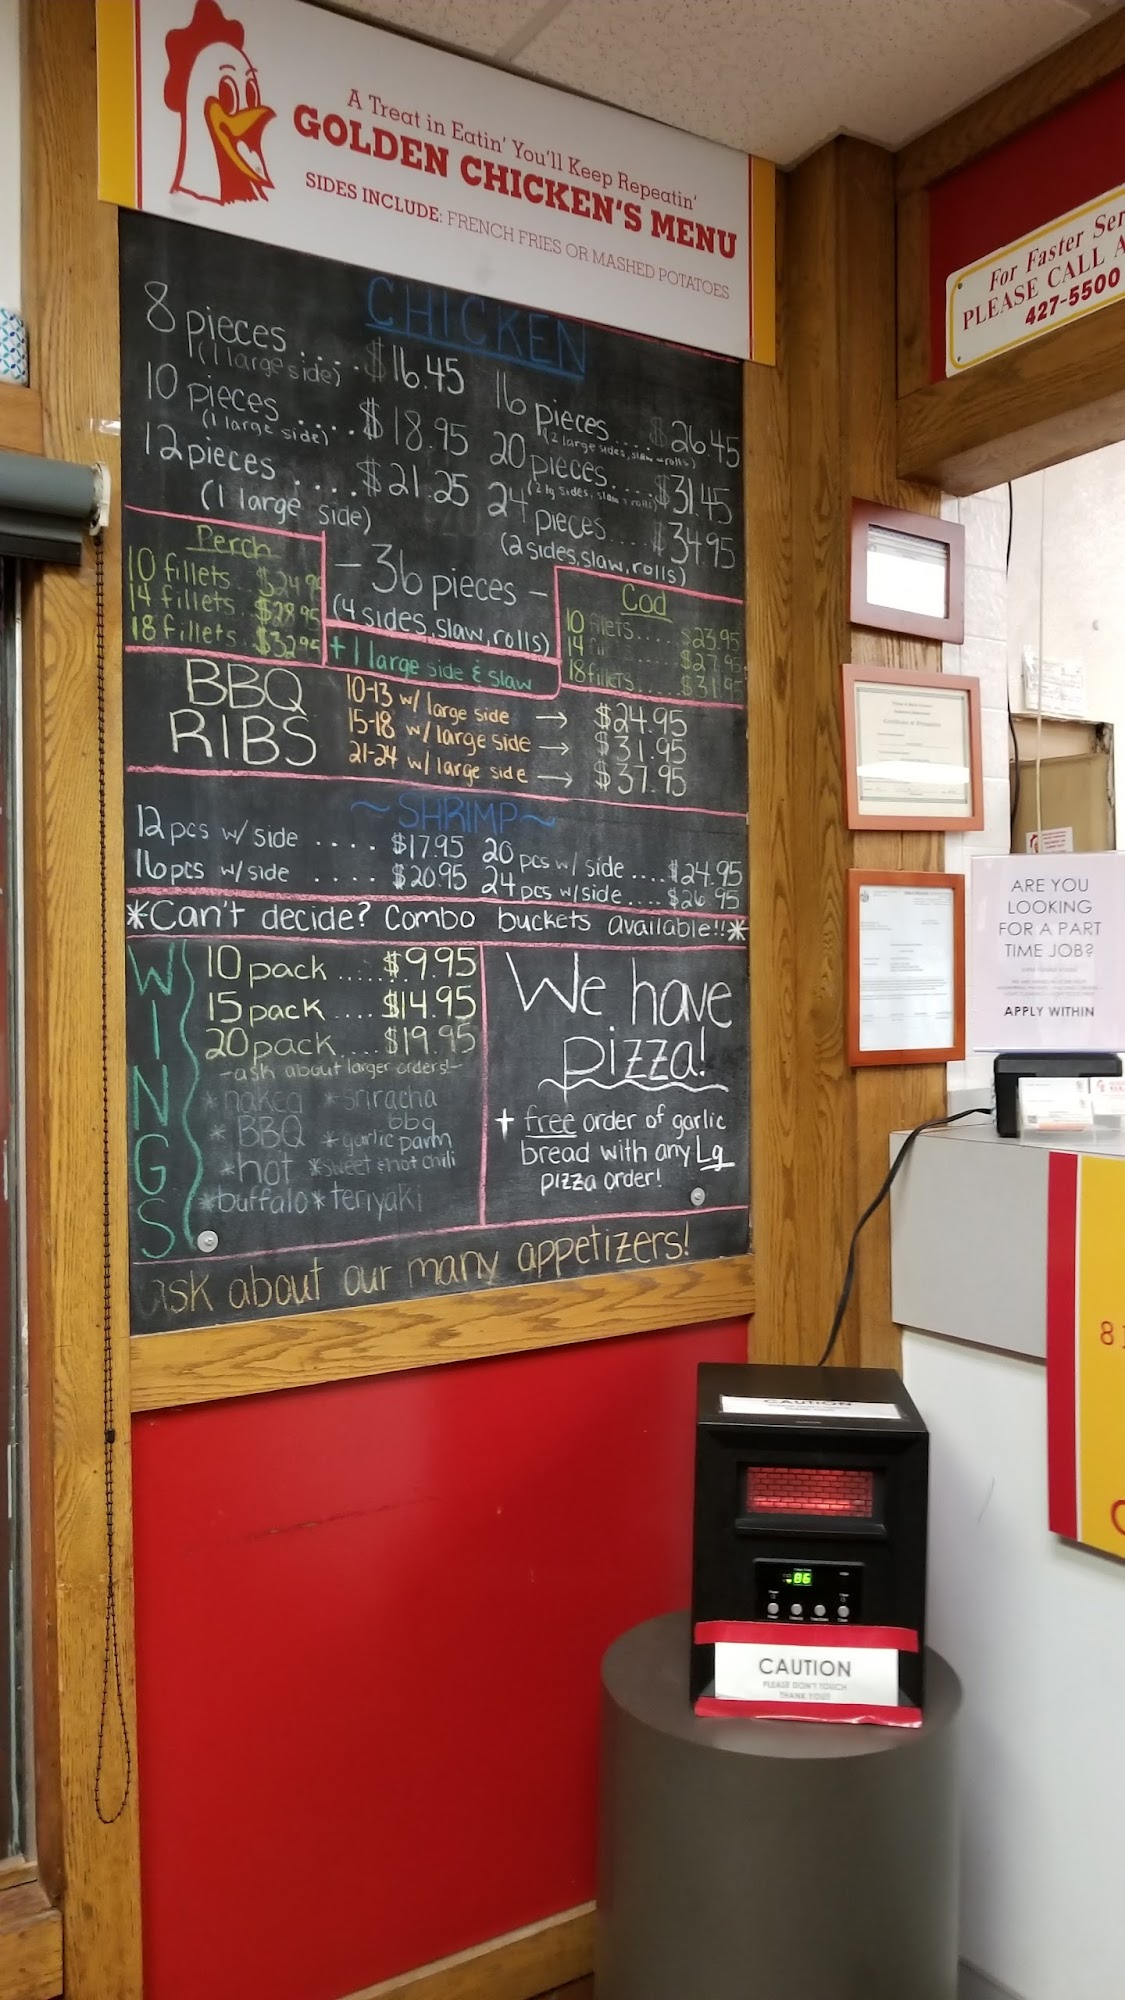 A Treat in Eatin' You'll Keep Repeatin'
GOLDEN CHICKEN'S MENU
SIDES INCLUDE: FRENCH FRIES OR MASHED POTATOES
For Faster Ser
PLEASE CALL A
427-5500
CHICKEN
8 pieces .... $16.45
(1 large side)
10 pieces .... $18.95
(1 large side)
12 pieces .... $21.25
(1 large side)
16 pieces.... $26.45
(2 large sides, slaw, rolls)
20 pieces.... $31.45
(2 lg sides, slaw, rolls)
24 pieces.... $34.95
(2 sides, slaw, rolls)
- 36 pieces -
(4 sides, slaw, rolls)
+ 1 large side & slaw
Perch
10 fillets.. $24.95
14 fillets.. $28.95
18 fillets.. $32.95
Cod
10 fillets.... $23.95
14 $27.95
18 fillets..... $31.95
BBQ
RIBS
10-13 w/ large side → $24.95
15-18 w/ large side → $31.95
21-24 w/ large side → $37.95
~SHRIMP~
12 pcs w/ side .... $17.95
16 pcs w/side .... $20.95
20 pcs w/ side .... $24.95
24 pcs w/side .... $26.95
*Can't decide? Combo buckets available!!*
WINGS
10 pack .... $9.95
15 pack .... $14.95
20 pack .... $19.95
-ask about larger orders!-
*naked *sriracha bbq
* BBQ *garlic parm
*hot *sweet & hot chili
*buffalo *teriyaki
We have
pizza!
+ free order of garlic
bread with any Lg
pizza order!
ask about our many appetizers!
ARE YOU
LOOKING
FOR A PART
TIME JOB?
APPLY WITHIN
CAUTION
86
CAUTION
PLEASE DON'T TOUCH
THANK YOU!!